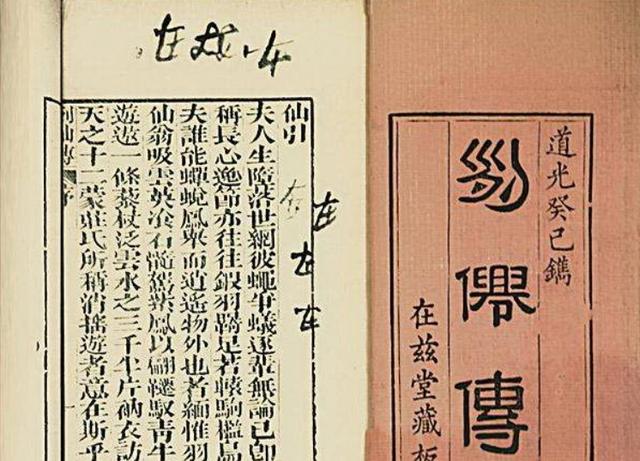 道光癸巳鐫
列僊傳
在茲堂藏板
仙引
夫人生墮落世網彼蠅爭蟻逐輩無論已卽
稱長心逸節亦往往羽足若轅駒檻
夫誰能蟬蛻鳳舉而逍遙物外也者緬惟羽
仙翁吸雲英飡石髓駕紫鳳以翩躚馭青牛
遊遨一條藜杖泛雲水之三千半片衲衣訪
天之十二蒙莊氏所稱消搖遊者意在斯乎
列仙傳 序 一
在
在
左
在